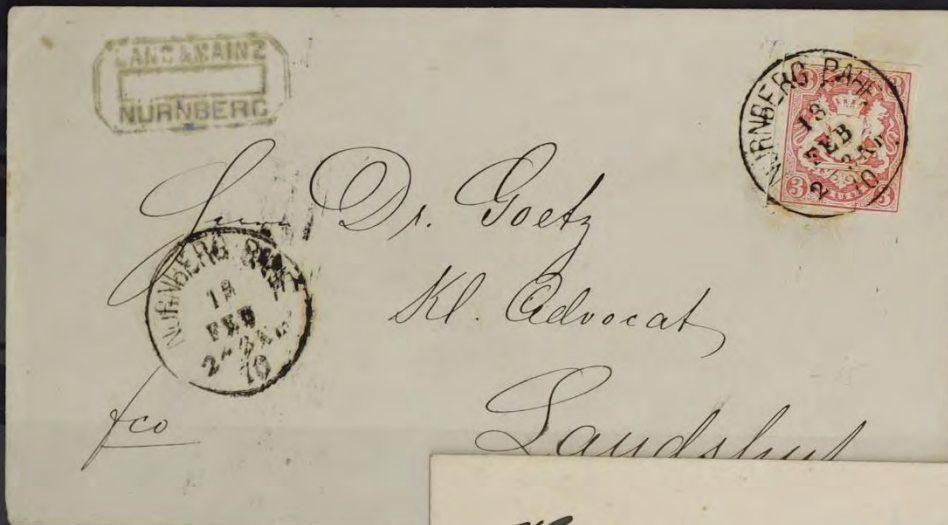 LANG & MAINZ
NÜRNBERG
NÜRNBERG BAHN
18
FEB
10
3
3
3
Herrn Dr. Goetz
Kl. Advocat
Landshut
NÜRNBERG
18
FEB
10
fco